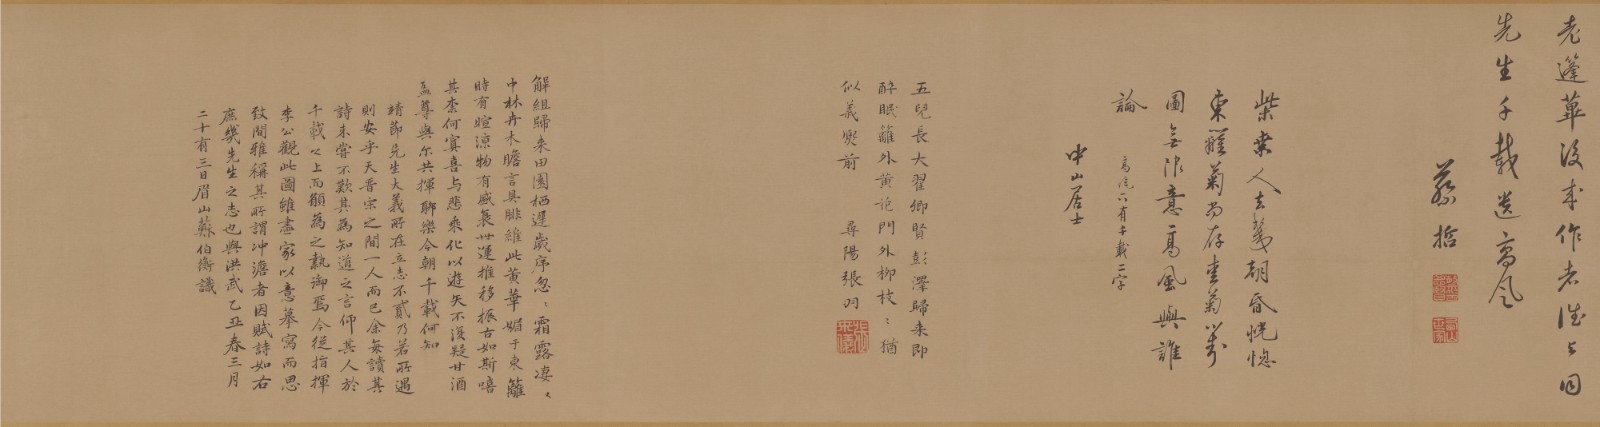 老蓬華後來作者
先生千載送高風
蔡哲
柴桑人去幾朝昏恍惚
東籬菊尚存畫菊
圖無限意高風與誰
論
高風下有千載二字
中山居士
五兒長大翟卿賢彭澤歸來即
醉眠籬外黃花門外柳枝〻猶
似義熙前 尋陽張羽
解組歸來田園栖遲歲序忽〻霜露凄〻
中林卉木瞻言具腓維此黃華媚于東籬
時有暄涼物有盛衰世運推移振古如斯嘻
其柰何寡喜与悲乘化以遊矢不復疑甘酒
盈尊與尔共揮聊樂今朝千載何知
靖節先生大義所在立志不貳乃若所遇
則安乎天晋宋之間一人而已余每讀其
詩未嘗不歎其為知道之言仰其人於
千載之上而願為之執御焉今從指揮
李公觀此圖雖畫家以意摹寫而思
致閒雅稱其所謂冲澹者因賦詩如右
庶幾先生之志也與洪武乙丑春三月
二十有三日眉山蘇伯衡識